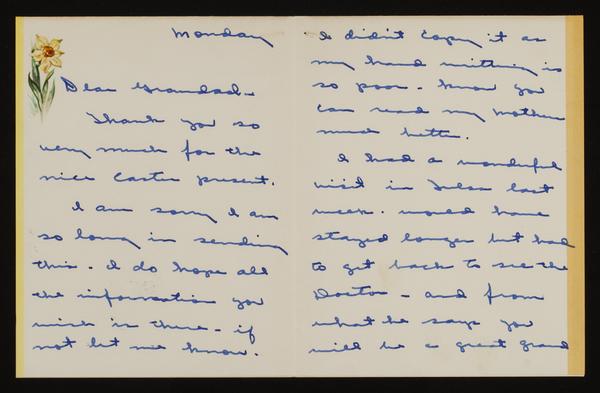 Monday
Dear Grandad -
Thank you so
very much for the
nice Easter present.
I am sorry I am
so long in sending
this. I do hope all
the information you
wish is there - if
not let me know.
I didn't copy it as
my hand writting is
so poor - know you
can read my Mother
much better.
I had a wonderful
visit in Tulsa last
week. would have
stayed longer but had
to get back to see the
Doctor - and from
what he says you
will be a great grand